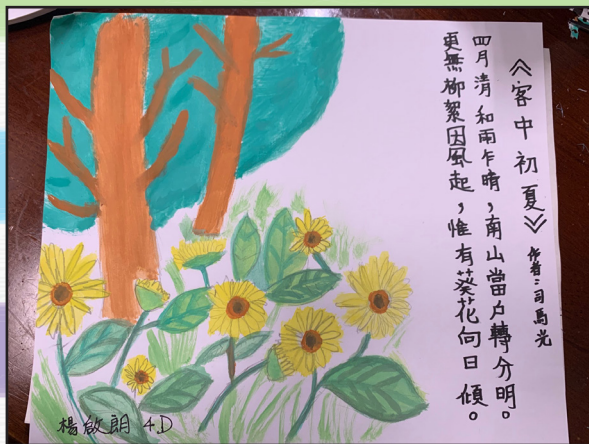 《客中初夏》
作者：司馬光
四月清和雨乍晴，南山當户轉分明。
更無柳絮因風起，惟有葵花向日傾。
楊啟朗 4D